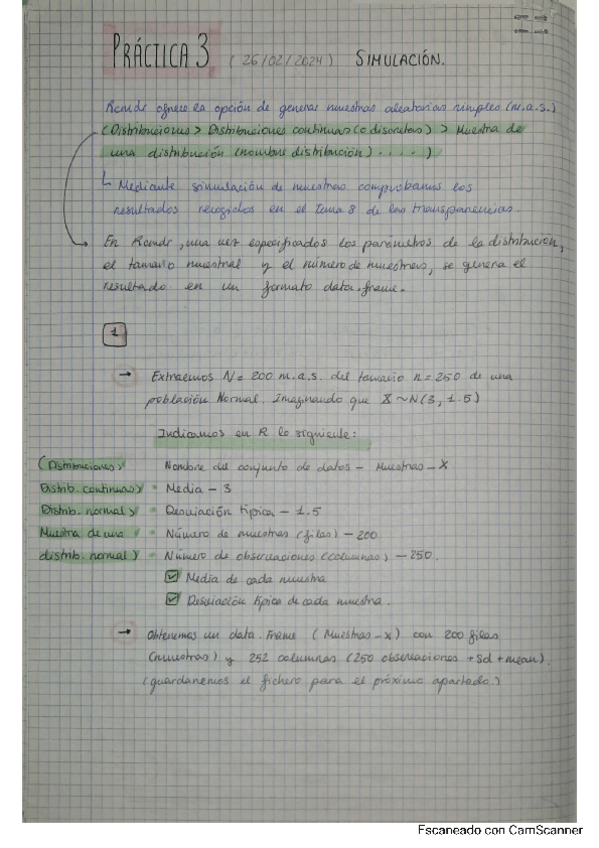 PRÁCTICA 3 (26/02/2024) SIMULACIÓN.
Rcmdr ofrece la opción de generar muestras aleatorias simples (m.a.s.)
(Distribuciones > Distribuciones continuas (o discretas) > Muestra de
una distribución (nombre distribución) ....)
Mediante simulación de muestras comprobamos los
resultados recogidos en el tema 8 de las transparencias.
En Rcmdr, una vez especificados los parámetros de la distribución,
el tamaño muestral y el número de muestras, se genera el
resultado en un formato data.frame.
1
→ Extraemos N = 200 m.a.s. del tamaño n = 250 de una
población Normal. Imaginando que X ~ N(3, 1.5)
Indicamos en R lo siguiente:
(Distribuciones > Nombre del conjunto de datos - Muestras_X
Distrib. continuas > Media - 3
Distrib. normal > Desviación típica - 1.5
Muestra de una Número de muestras (filas) - 200
distrib. normal) Número de observaciones (columnas) - 250.
Media de cada muestra
Desviación típica de cada muestra.
→ Obtenemos un data.frame (Muestras_X) con 200 filas
(muestras) y 252 columnas (250 observaciones + sd + mean).
(guardaremos el fichero para el próximo apartado.)
Escaneado con CamScanner